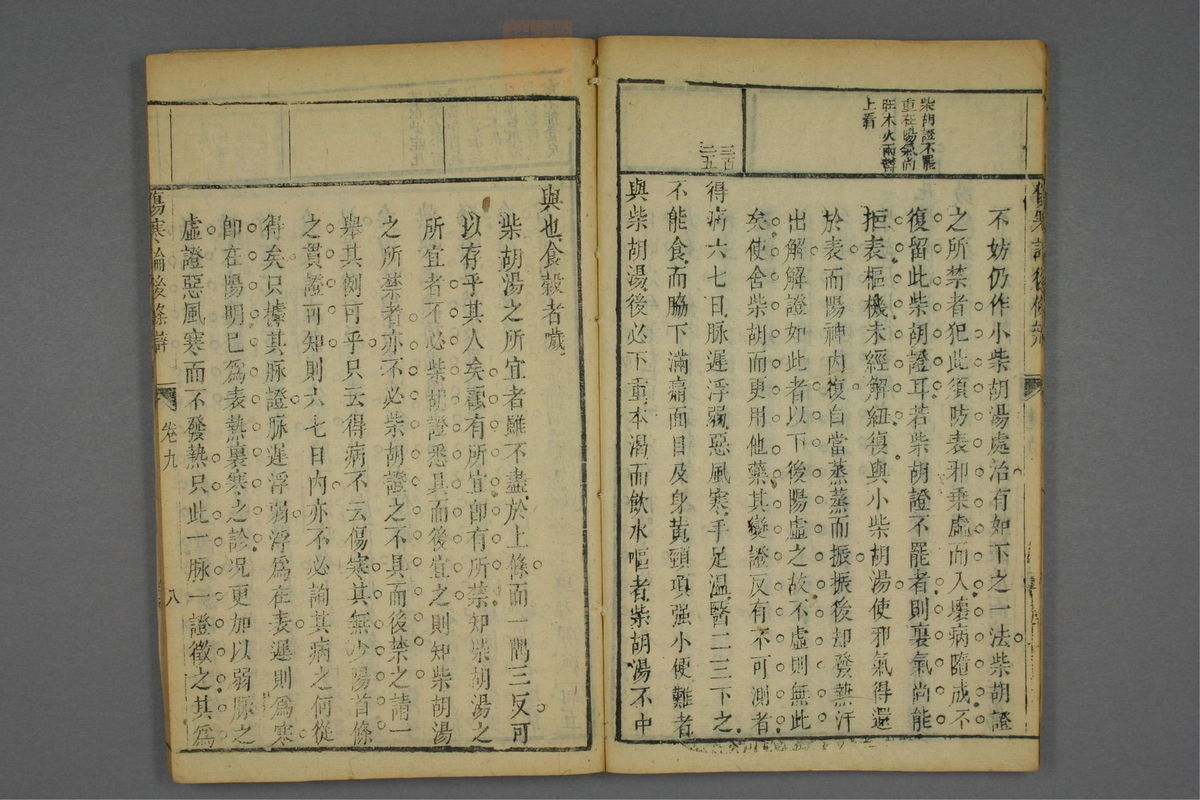 柴胡證不罷
重在陽氣尚
旺木火兩鬱
上看
不妨仍作小柴胡湯處治有如下之一法柴胡證
之所禁者犯此須防表邪乘虛而入壞病隨成不
復留此柴胡證耳若柴胡證不罷者則裏氣尚能
拒表樞機未經解紐復與小柴胡湯使邪氣得還
於表而陽神內復自當蒸蒸而振振後却發熱汗
出解解證如此者以下後陽虛之故不虛則無此
矣使舍柴胡而更用他藥其變證反有不可測者
二百
二五
得病六七日脉遲浮弱惡風寒手足溫醫二三下之
不能食而脇下滿痛面目及身黃頸項强小便難者
與柴胡湯後必下重本渴而飲水嘔者柴胡湯不中
與也食穀者噦
柴胡湯之所宜者雖不盡於上條而一隅三反可
以存乎其人矣顧有所宜卽有所禁知柴胡湯之
所宜者不必柴胡證悉具而後宜之則知柴胡湯
之所禁者亦不必柴胡證之不具而後禁之請一
舉其例可乎只云得病不云傷寒其無少陽首條
之貫證可知則六七日內亦不必論其病之何從
得矣只據其脉證脉遲浮弱浮爲在表遲則爲寒
卽在陽明已爲表熱裏寒之診况更加以弱脉之
虛證惡風寒而不發熱只此一脉一證徵之其爲
傷寒論後條辨
卷九
八